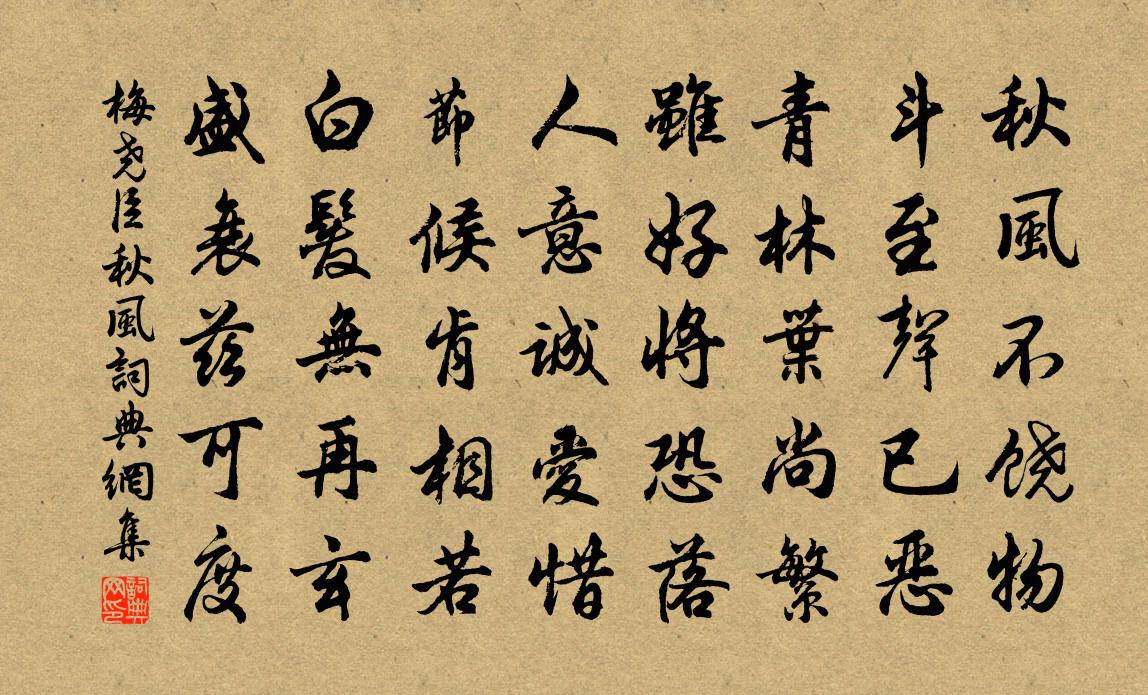 秋風不饒物
斗至聲已惡
青林葉尚繁
雖好將恐落
人意誠愛惜
節候肯相若
白髮無再玄
盛衰茲可度
梅堯臣秋風詞典網集
詞典
网印